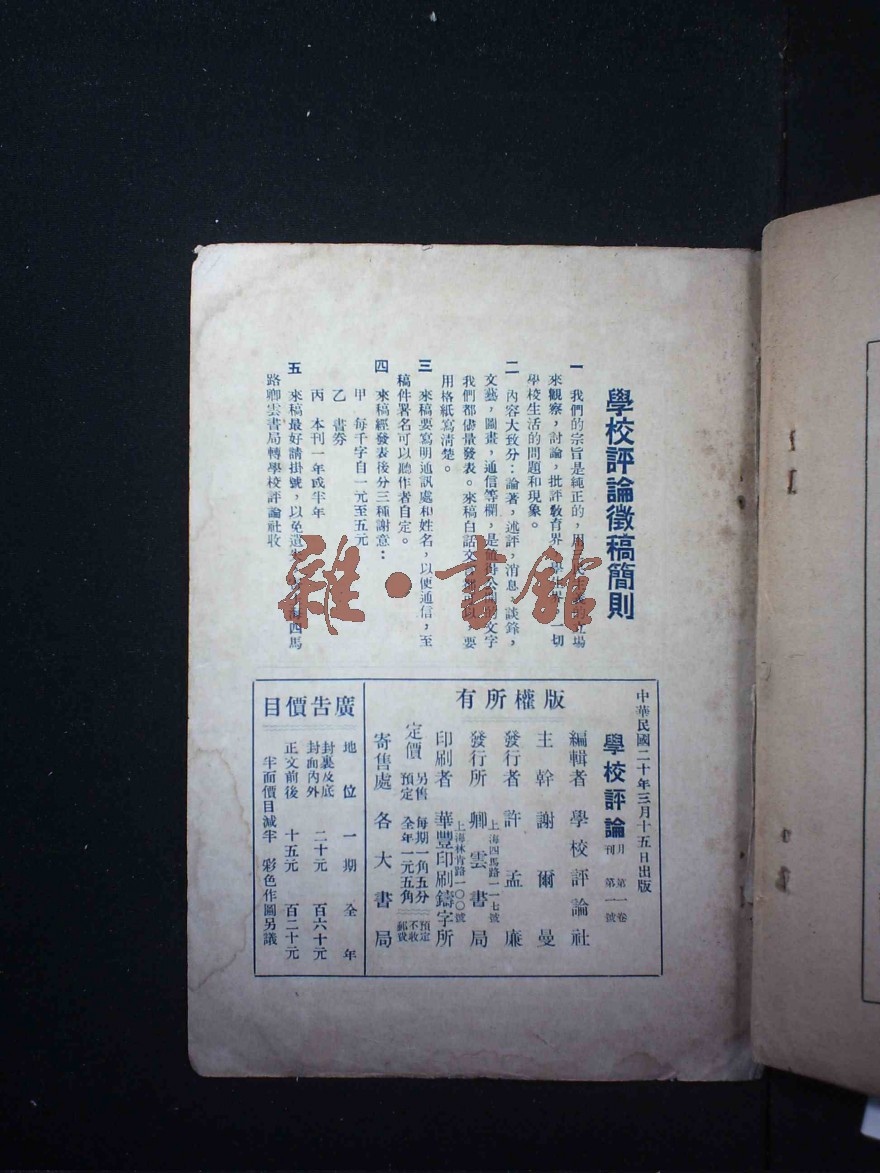 學校評論徵稿簡則
一 我們的宗旨是純正的，用 立場
來觀察，討論，批評教育界 一切
學校生活的問題和現象。
二 內容大致分：論著，述評，消息，談錄，
文藝，圖畫，通信等欄，是值得公開的文字
我們都儘量發表。來稿白話文 要
用格紙寫清楚。
三 來稿要寫明通訊處和姓名，以便通信，至
稿件署名可以聽作者自定。
四 來稿經發表後分三種謝意：
甲 每千字自一元至五元
乙 書券
丙 本刊一年或半年
五 來稿最好請掛號，以免遺 四馬
路卿雲書局轉學校評論社收
雜·書館
中華民國二十年三月十五日出版
學校評論 月刊 第一卷 第一號
版權所有
編輯者 學校評論社
主幹 謝爾曼
發行者 許孟廉
上海四馬路一一七號
發行所 卿雲書局
上海林肯路一〇〇號
印刷者 華豐印刷鑄字所
定價 另售 每期一角五分 預定 全年一元五角 預定不收郵費
寄售處 各大書局
廣告價目
地位 一期 全年
封裏及底封面內外 二十元 百六十元
正文前後 十五元 百二十元
半面價目減半 彩色作圖另議